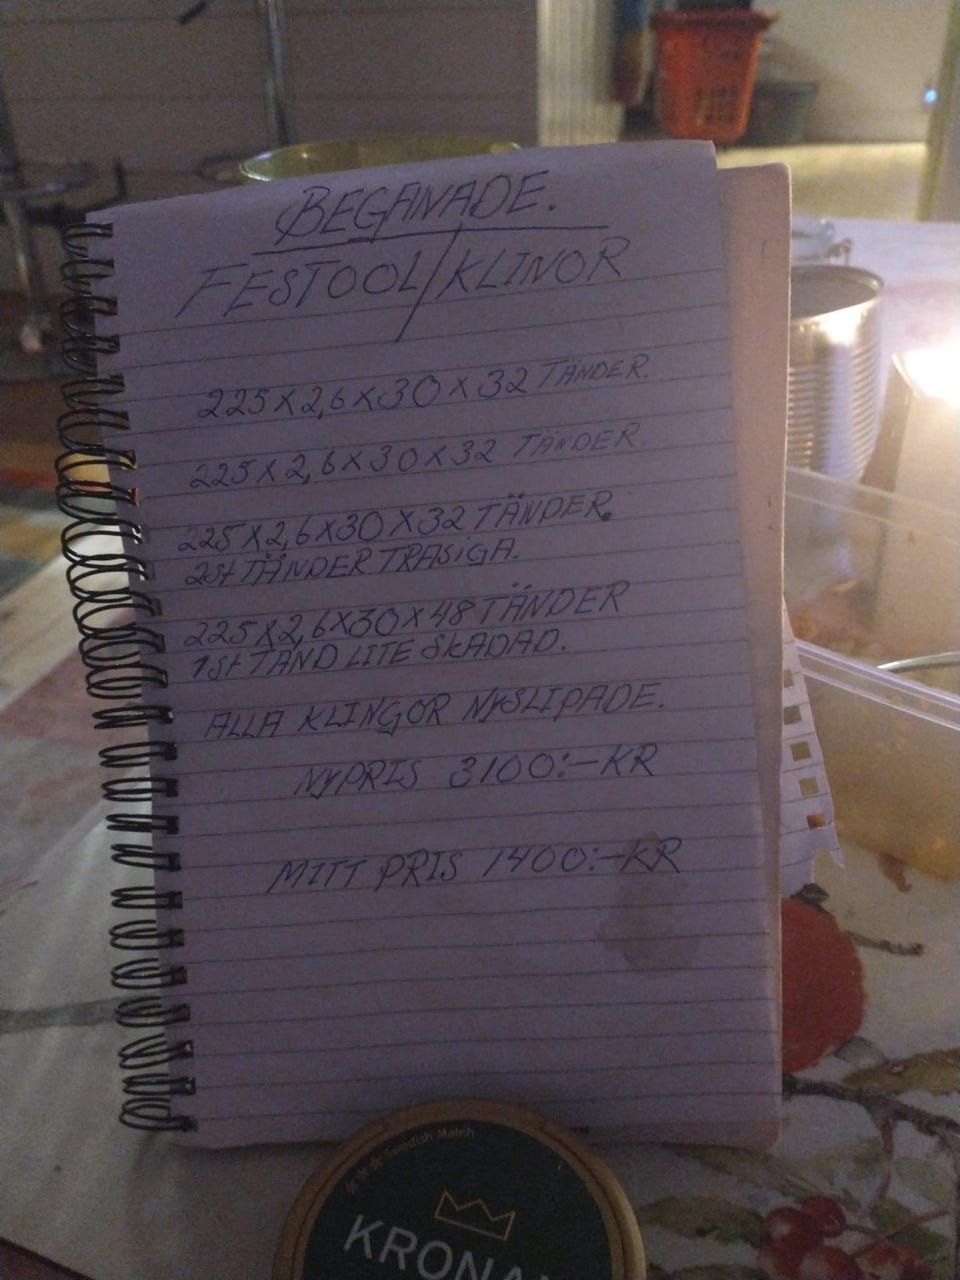 BEGANADE.
FESTOOL/KLINOR
225X2,6X30X32 TÄNDER.
225X2,6X30X32 TÄNDER
225X2,6X30X32 TÄNDER.
2St TÄNDER TRASIGA.
225X2,6X30X48 TÄNDER
1St TAND LITE SKADAD.
ALLA KLINGOR NYSLIPADE.
NYPRIS 3100:-KR
MITT PRIS 1400:-KR
Swedish Match